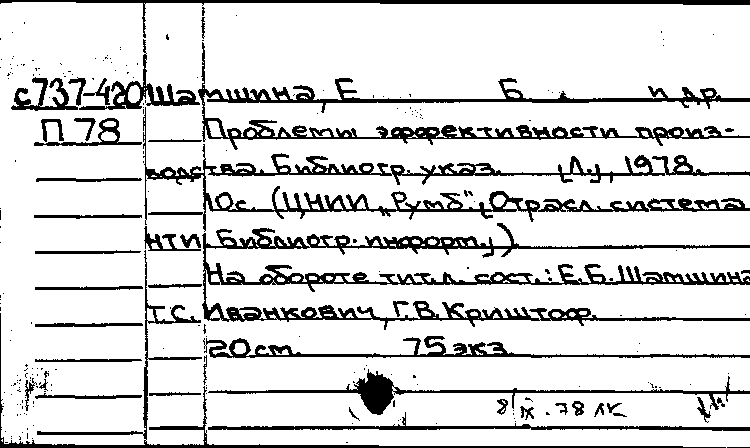 с737-420 Шамшина, Е. Б. и др.
П 78 Проблемы эффективности произ-
водства. Библиогр. указ. [Л.], 1978.
10с. (ЦНИИ „Румб“ [Отрасл. система
НТИ. Библиогр. информ.])
На обороте тит. л. сост.: Е.Б. Шамшина
Т.С. Иванкович, Г.В. Криштоф.
20 см. 75 экз.
8/IX.78 ЛК